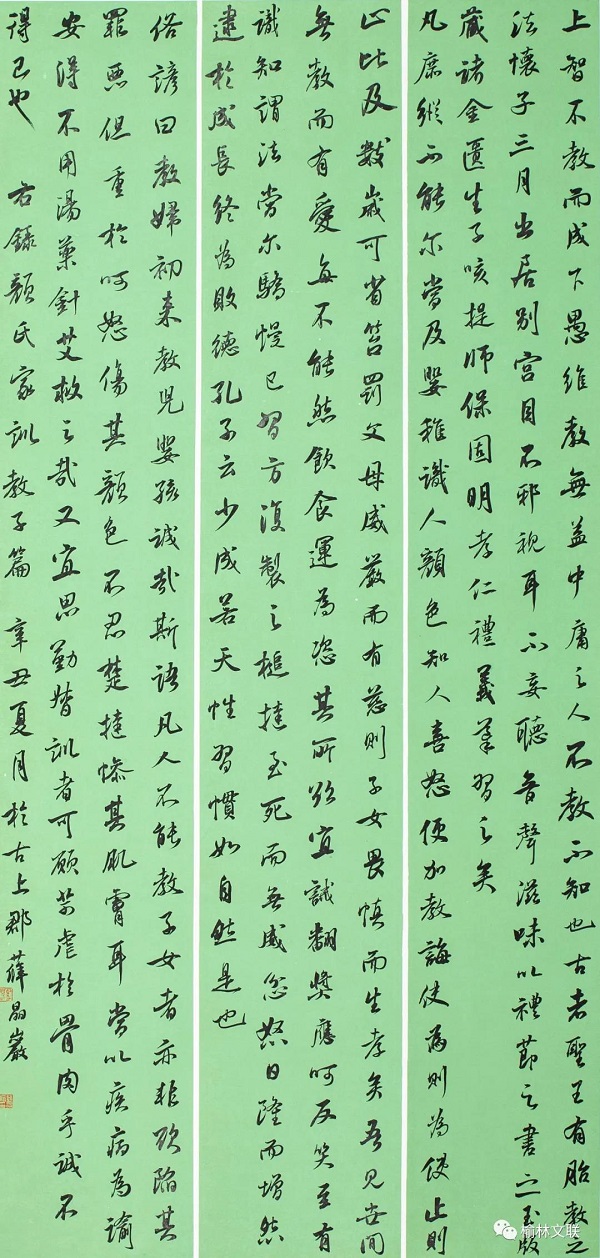 上智不教而成下愚维教無益中庸之人不教不知也古者聖王有胎教之
法懷子三月出居别宫目不邪視耳不妄聽音聲滋味以禮節之書之玉版
藏諸金匱生子咳提師保固明孝仁禮義導習之矣
凡庶縱不能尔當及嬰稚識人顏色知人喜怒便加教誨使為則為使止則
止比及數歲可省笞罰父母威嚴而有慈則子女畏慎而生孝矣吾見世間
無教而有愛每不能然飲食運為恣其所欲宜誡翻獎應呵反笑至有
識知謂法當尔驕慢已習方復製之捶撻至死而無威忿怒日隆而增然
逮於成長終為敗德孔子云少成若天性習慣如自然是也
俗諺曰教婦初來教兒嬰孩誠哉斯語凡人不能教子女者亦非欲陷其
罪惡但重於呵怒傷其顏色不忍楚撻慘其肌膚耳當以疾病為諭
安得不用湯藥針艾救之哉又宜思勤督訓者可願苛虐於骨肉乎誠不
得已也 右錄顏氏家訓教子篇 辛丑夏月於古上郡薛晶巖
榆林文联